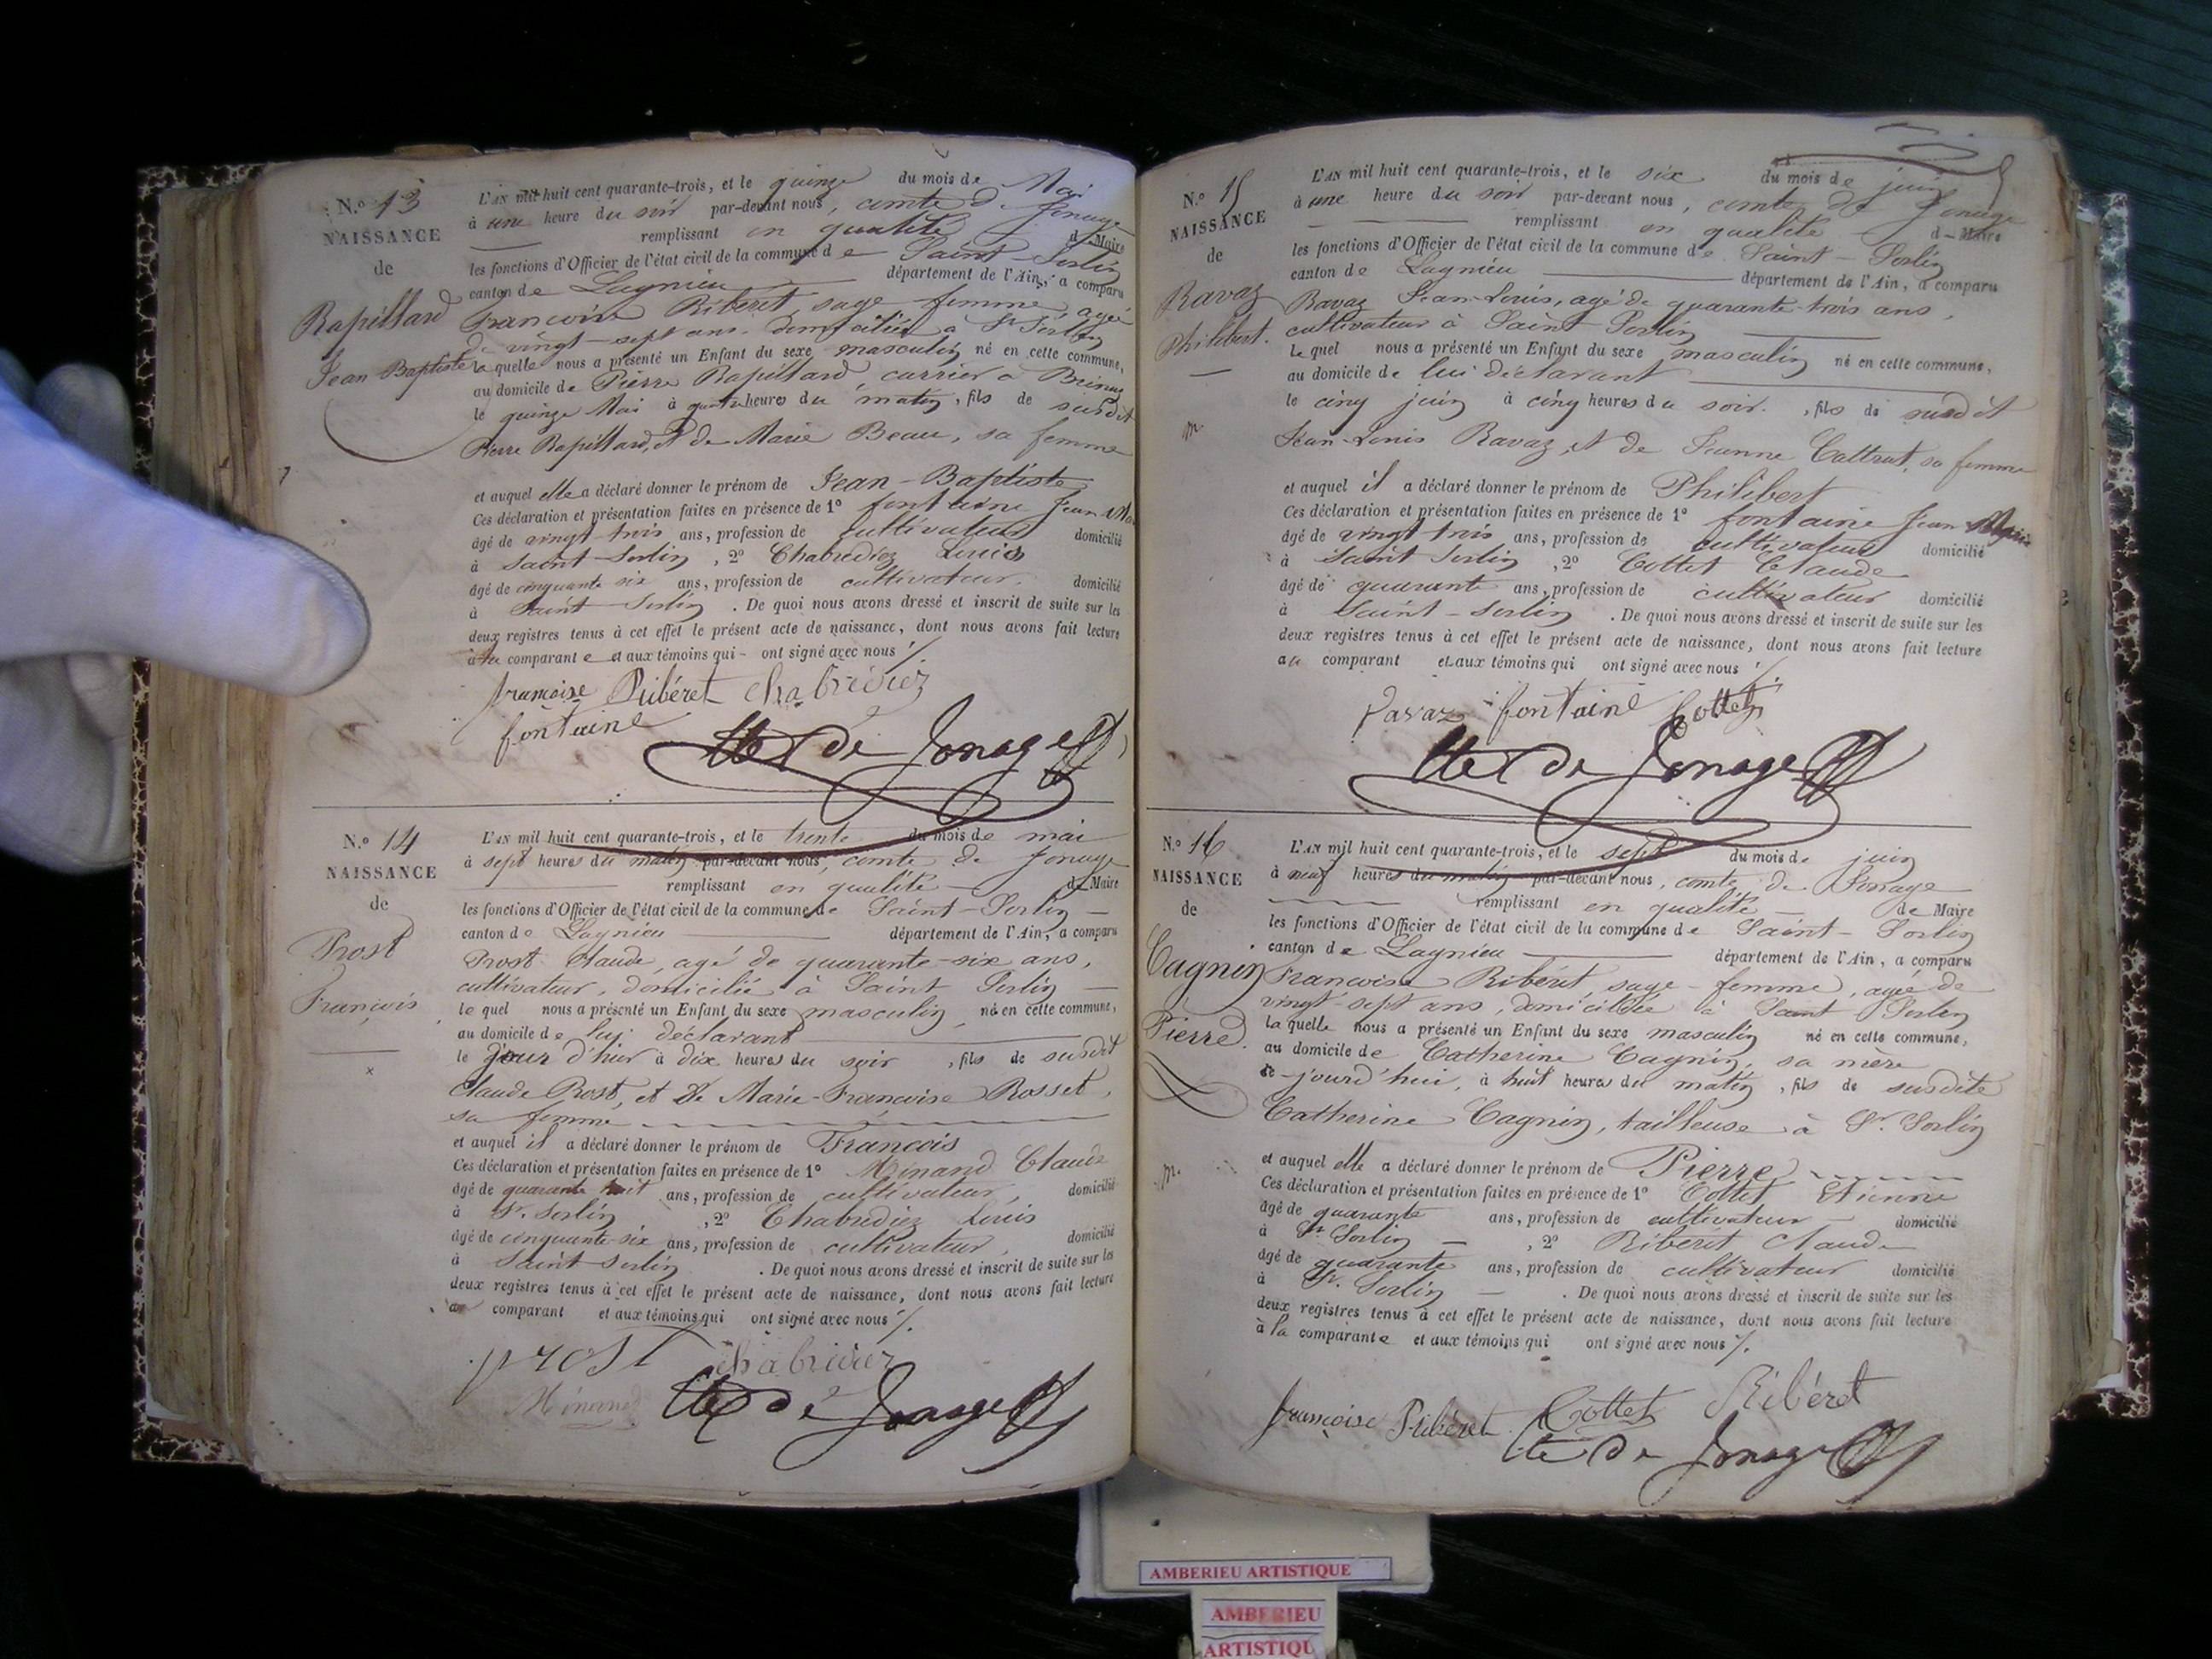 N.o 13
NAISSANCE
de
Rapillard
Jean Baptiste
L'AN mil huit cent quarante-trois, et le quinze du mois de Mai
à une heure du soir par-devant nous, comte de Jonage
remplissant en qualité d Maire
les fonctions d'Officier de l'état civil de la commune de Saint-Sorlin
canton de Lagnieu département de l'Ain, a comparu
Francoise Riberet, sage femme, agée
de vingt-sept ans, domiciliée à St Sorlin
laquelle nous a présenté un Enfant du sexe masculin né en cette commune,
au domicile de Pierre Rapillard, carrier à
le quinze Mai à quatre heures du matin, fils de susdit
Pierre Rapillard, et de Marie Beau, sa femme
et auquel elle a déclaré donner le prénom de Jean-Baptiste
Ces déclaration et présentation faites en présence de 1o fontaine Jean
âgé de vingt trois ans, profession de cultivateur domicilié
à Saint-Sorlin, 2o Chabrediez Louis
âgé de cinquante six ans, profession de cultivateur, domicilié
à Saint-Sorlin. De quoi nous avons dressé et inscrit de suite sur les
deux registres tenus à cet effet le présent acte de naissance, dont nous avons fait lecture
à la comparante et aux témoins qui ont signé avec nous
francoise Ribéret chabridiez
fontaine
Cte de Jonage
N.o 14
NAISSANCE
de
Prost
François
L'AN mil huit cent quarante-trois, et le trente du mois de mai
à sept heures du matin par-devant nous, comte de Jonage
remplissant en qualité de Maire
les fonctions d'Officier de l'état civil de la commune de Saint-Sorlin
canton de Lagnieu département de l'Ain, a comparu
Prost Claude, agé de quarante-six ans,
cultivateur, domiciliée à Saint Sorlin
lequel nous a présenté un Enfant du sexe masculin né en cette commune,
au domicile de lui déclarant
le jour d'hier à dix heures du soir, fils de susdit
Claude Prost, et de Marie-Francoise Rosset,
sa femme
et auquel il a déclaré donner le prénom de François
Ces déclaration et présentation faites en présence de 1o Minand Claude
âgé de quarante huit ans, profession de cultivateur, domicilié
à St. Sorlin, 2o Chabrediez Louis
âgé de cinquante-six ans, profession de cultivateur, domicilié
à Saint Sorlin. De quoi nous avons dressé et inscrit de suite sur les
deux registres tenus à cet effet le présent acte de naissance, dont nous avons fait lecture
au comparant et aux témoins qui ont signé avec nous
prost chabridiez
Minand Cte de Jonage
N.o 15
NAISSANCE
de
Ravaz
Philibert.
L'AN mil huit cent quarante-trois, et le six du mois de juin
à une heure du soir par-devant nous, comte de Jonage
remplissant en qualité d Maire
les fonctions d'Officier de l'état civil de la commune de Saint-Sorlin
canton de Lagnieu département de l'Ain, a comparu
Ravaz Jean-Louis, agé de quarante-trois ans,
cultivateur à Saint Sorlin
lequel nous a présenté un Enfant du sexe masculin né en cette commune,
au domicile de lui déclarant
le cinq juin à cinq heures du soir, fils de susdit
Jean-Louis Ravaz, et de Jeanne Cattrat, sa femme
et auquel il a déclaré donner le prénom de Philibert
Ces déclaration et présentation faites en présence de 1o fontaine Jean Marie
âgé de vingt trois ans, profession de cultivateur domicilié
à Saint Sorlin, 2o Cottet Claude
âgé de quarante ans, profession de cultivateur domicilié
à Saint-Sorlin. De quoi nous avons dressé et inscrit de suite sur les
deux registres tenus à cet effet le présent acte de naissance, dont nous avons fait lecture
au comparant et aux témoins qui ont signé avec nous
Ravaz fontaine Cottet
Cte de Jonage
N.o 16
NAISSANCE
de
Cagnin
Pierre.
L'AN mil huit cent quarante-trois, et le sept du mois de juin
à neuf heures du matin par-devant nous, comte de Jonage
remplissant en qualité de Maire
les fonctions d'Officier de l'état civil de la commune de Saint-Sorlin
canton de Lagnieu département de l'Ain, a comparu
Francoise Ribéret, sage-femme, agée de
vingt-sept ans, domiciliée à Saint Sorlin
laquelle nous a présenté un Enfant du sexe masculin né en cette commune,
au domicile de Catherine Cagnin, sa mère
ce-jourd'hui, à huit heures du matin, fils de susdite
Catherine Cagnin, tailleuse à St. Sorlin
et auquel elle a déclaré donner le prénom de Pierre
Ces déclaration et présentation faites en présence de 1o Cottet Etienne
âgé de quarante ans, profession de cultivateur domicilié
à St. Sorlin, 2o Ribéret Claude
âgé de quarante ans, profession de cultivateur domicilié
à St. Sorlin. De quoi nous avons dressé et inscrit de suite sur les
deux registres tenus à cet effet le présent acte de naissance, dont nous avons fait lecture
à la comparante et aux témoins qui ont signé avec nous
françoise Ribéret Cottet Ribéret
Cte de Jonage
AMBERIEU ARTISTIQUE
AMBERIEU
ARTISTIQU